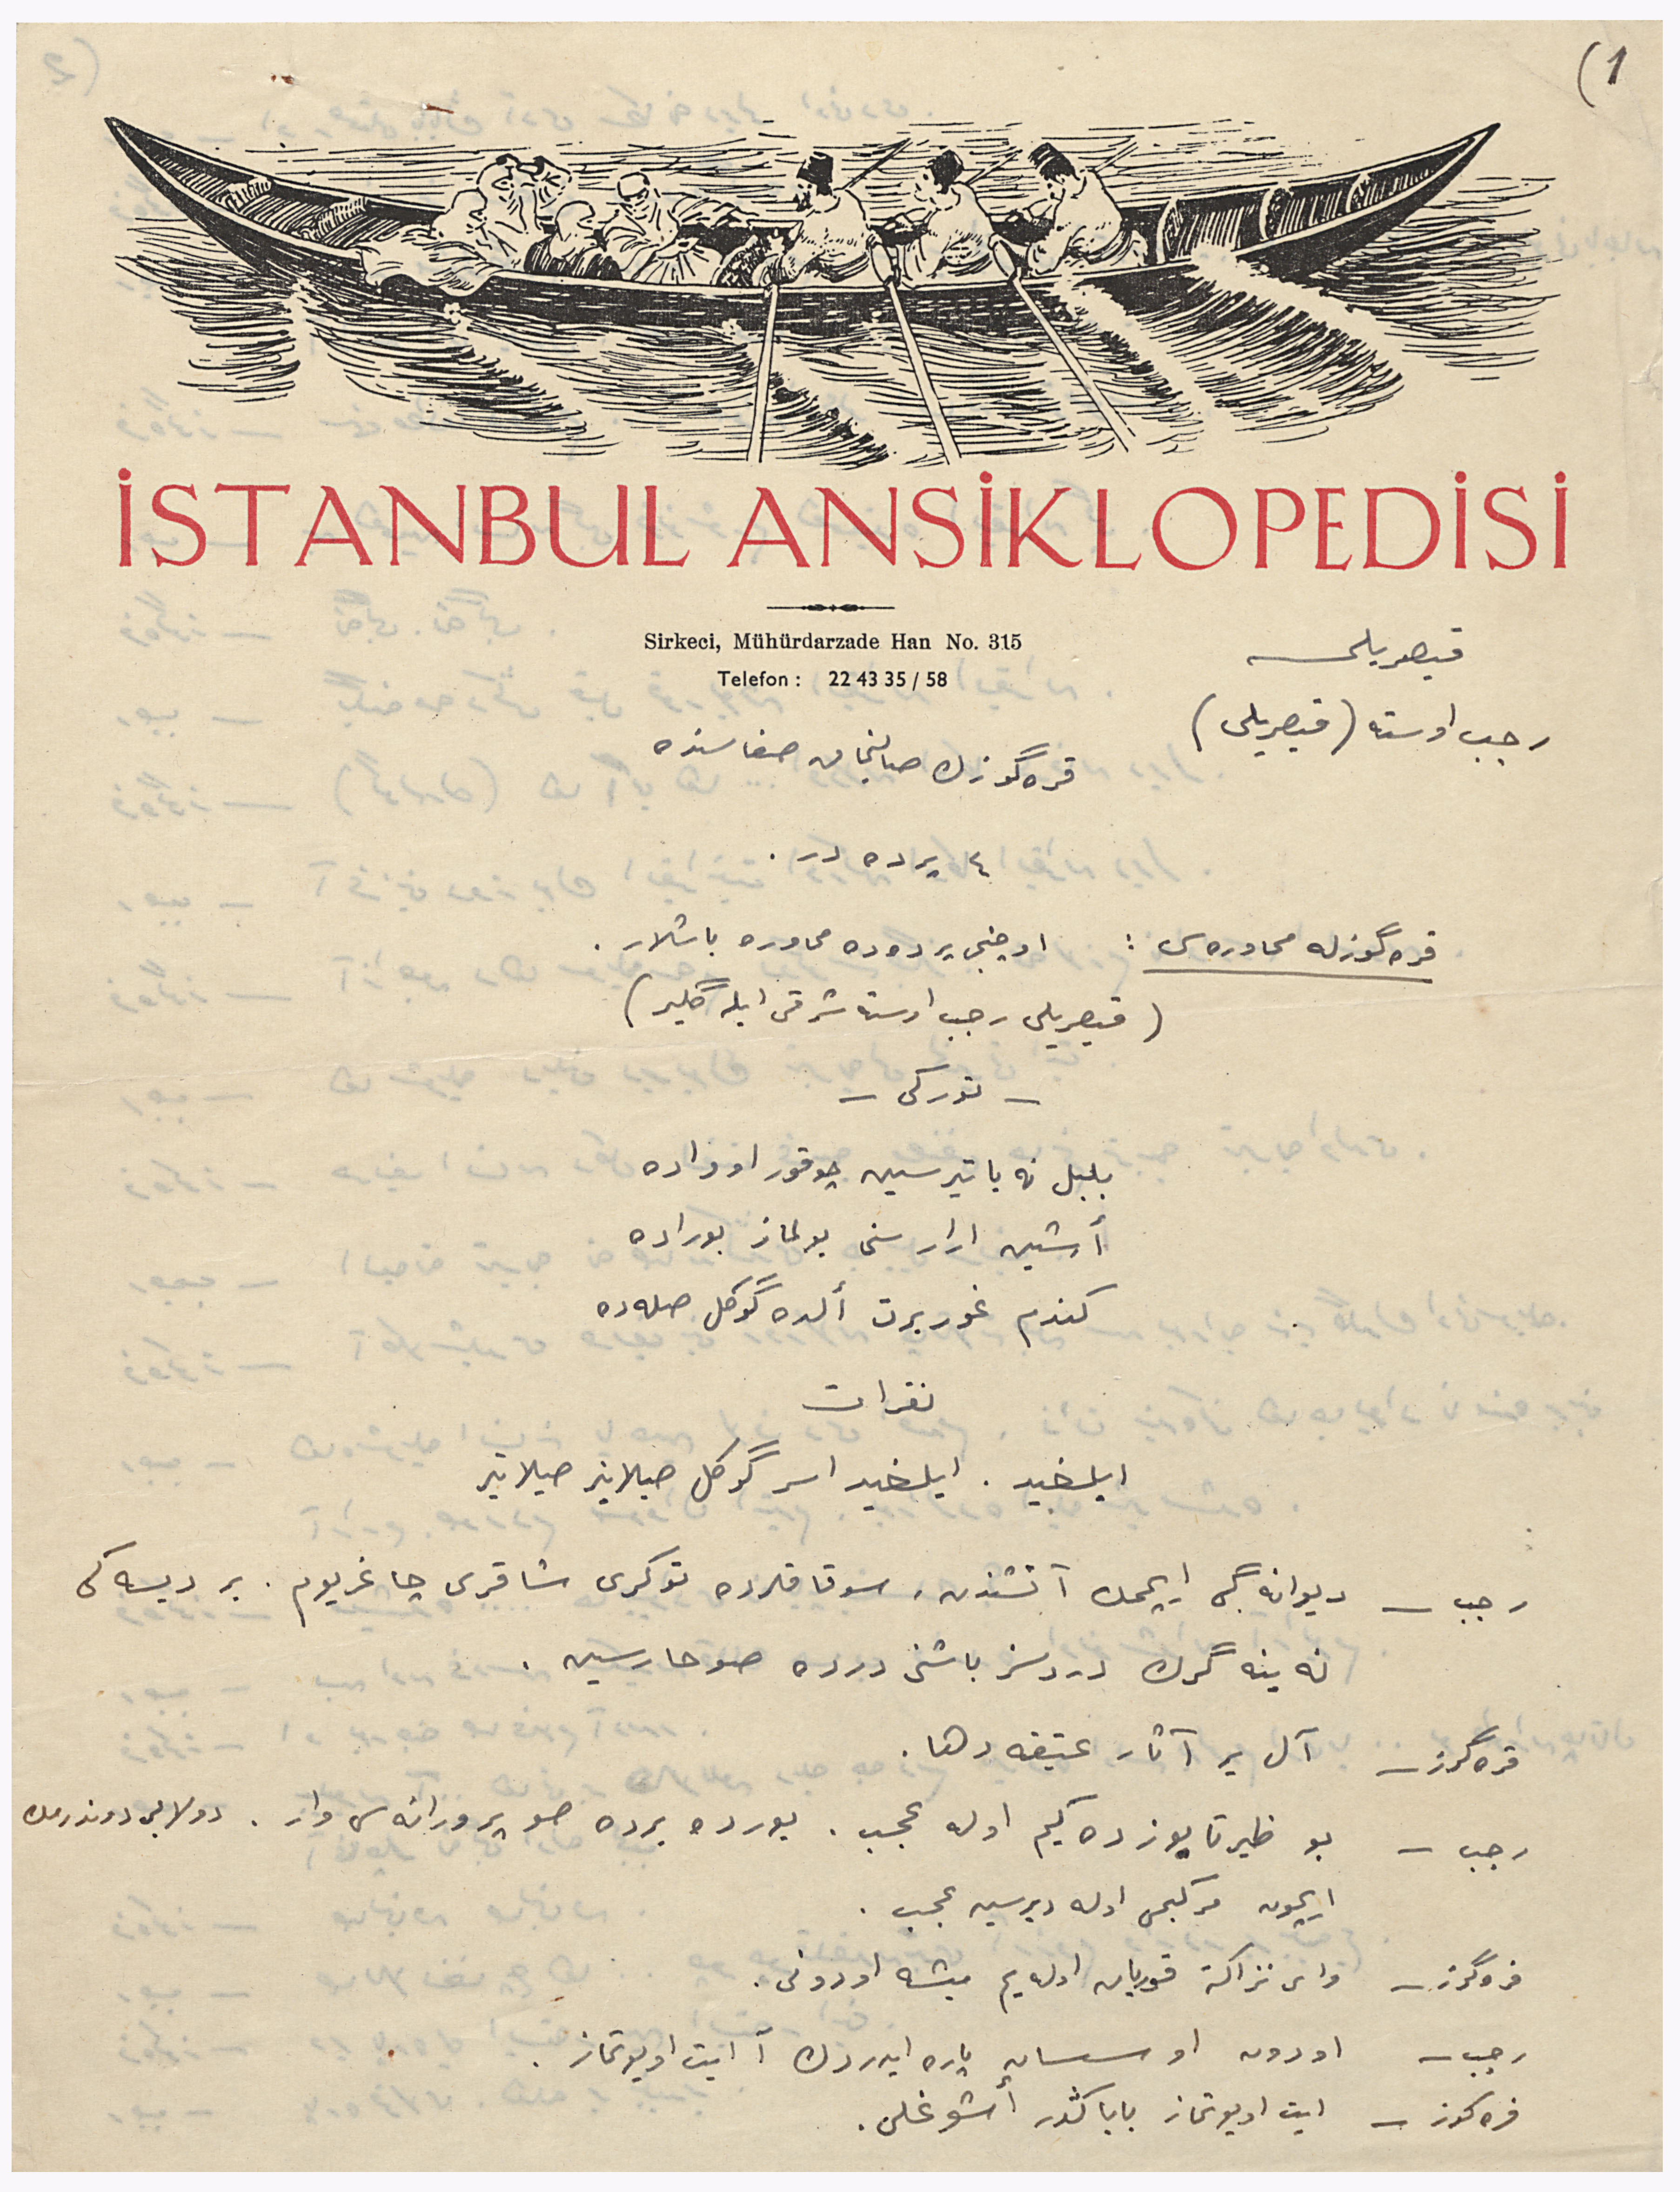 (1
İSTANBUL ANSİKLOPEDİSİ
Sirkeci, Mühürdarzade Han No. 315
Telefon : 22 43 35 / 58
قیصریلی
رجب اوسته (قیصریلی)
قره گوزك صالنجاق صفاسنده
٤ پرده در .
قره گوزله محاوره سی : اوچنجی پرده ده محاوره باشلار .
(قیصریلی رجب اوسته شرقی ایله گلیر)
– تورکی –
بلبل نه یاتیرسین چوقور اوواده
أشین ارار سنی بولماز بوراده
کندم غوربت ألده گوگل صله ده
نقرات
ایلغید . ایلغید اسر گوگل
رجب – دیوانه گبی ایچمك آتشندن ، سوقاقلرده تورکی چاغریوم . بر دیسه کی
نه ینه گرك دردسز باشنی درده صوخارسین .
قره گوز – آل بر آثار عتیقه دها .
رجب – بو کیم اوله عجب . بورده برده صو وار . دولابی دوندرمك
ایچون مرکبمی اوله دیرسین عجب .
قره گوز – وای نزاکته قوربان اوله یم میشه اودونی .
رجب – اودون اوسسان پاره ایدردك آ ایت اویوتماز .
قره گوز – ایت اویوتماز باباکدر أشو غلی .